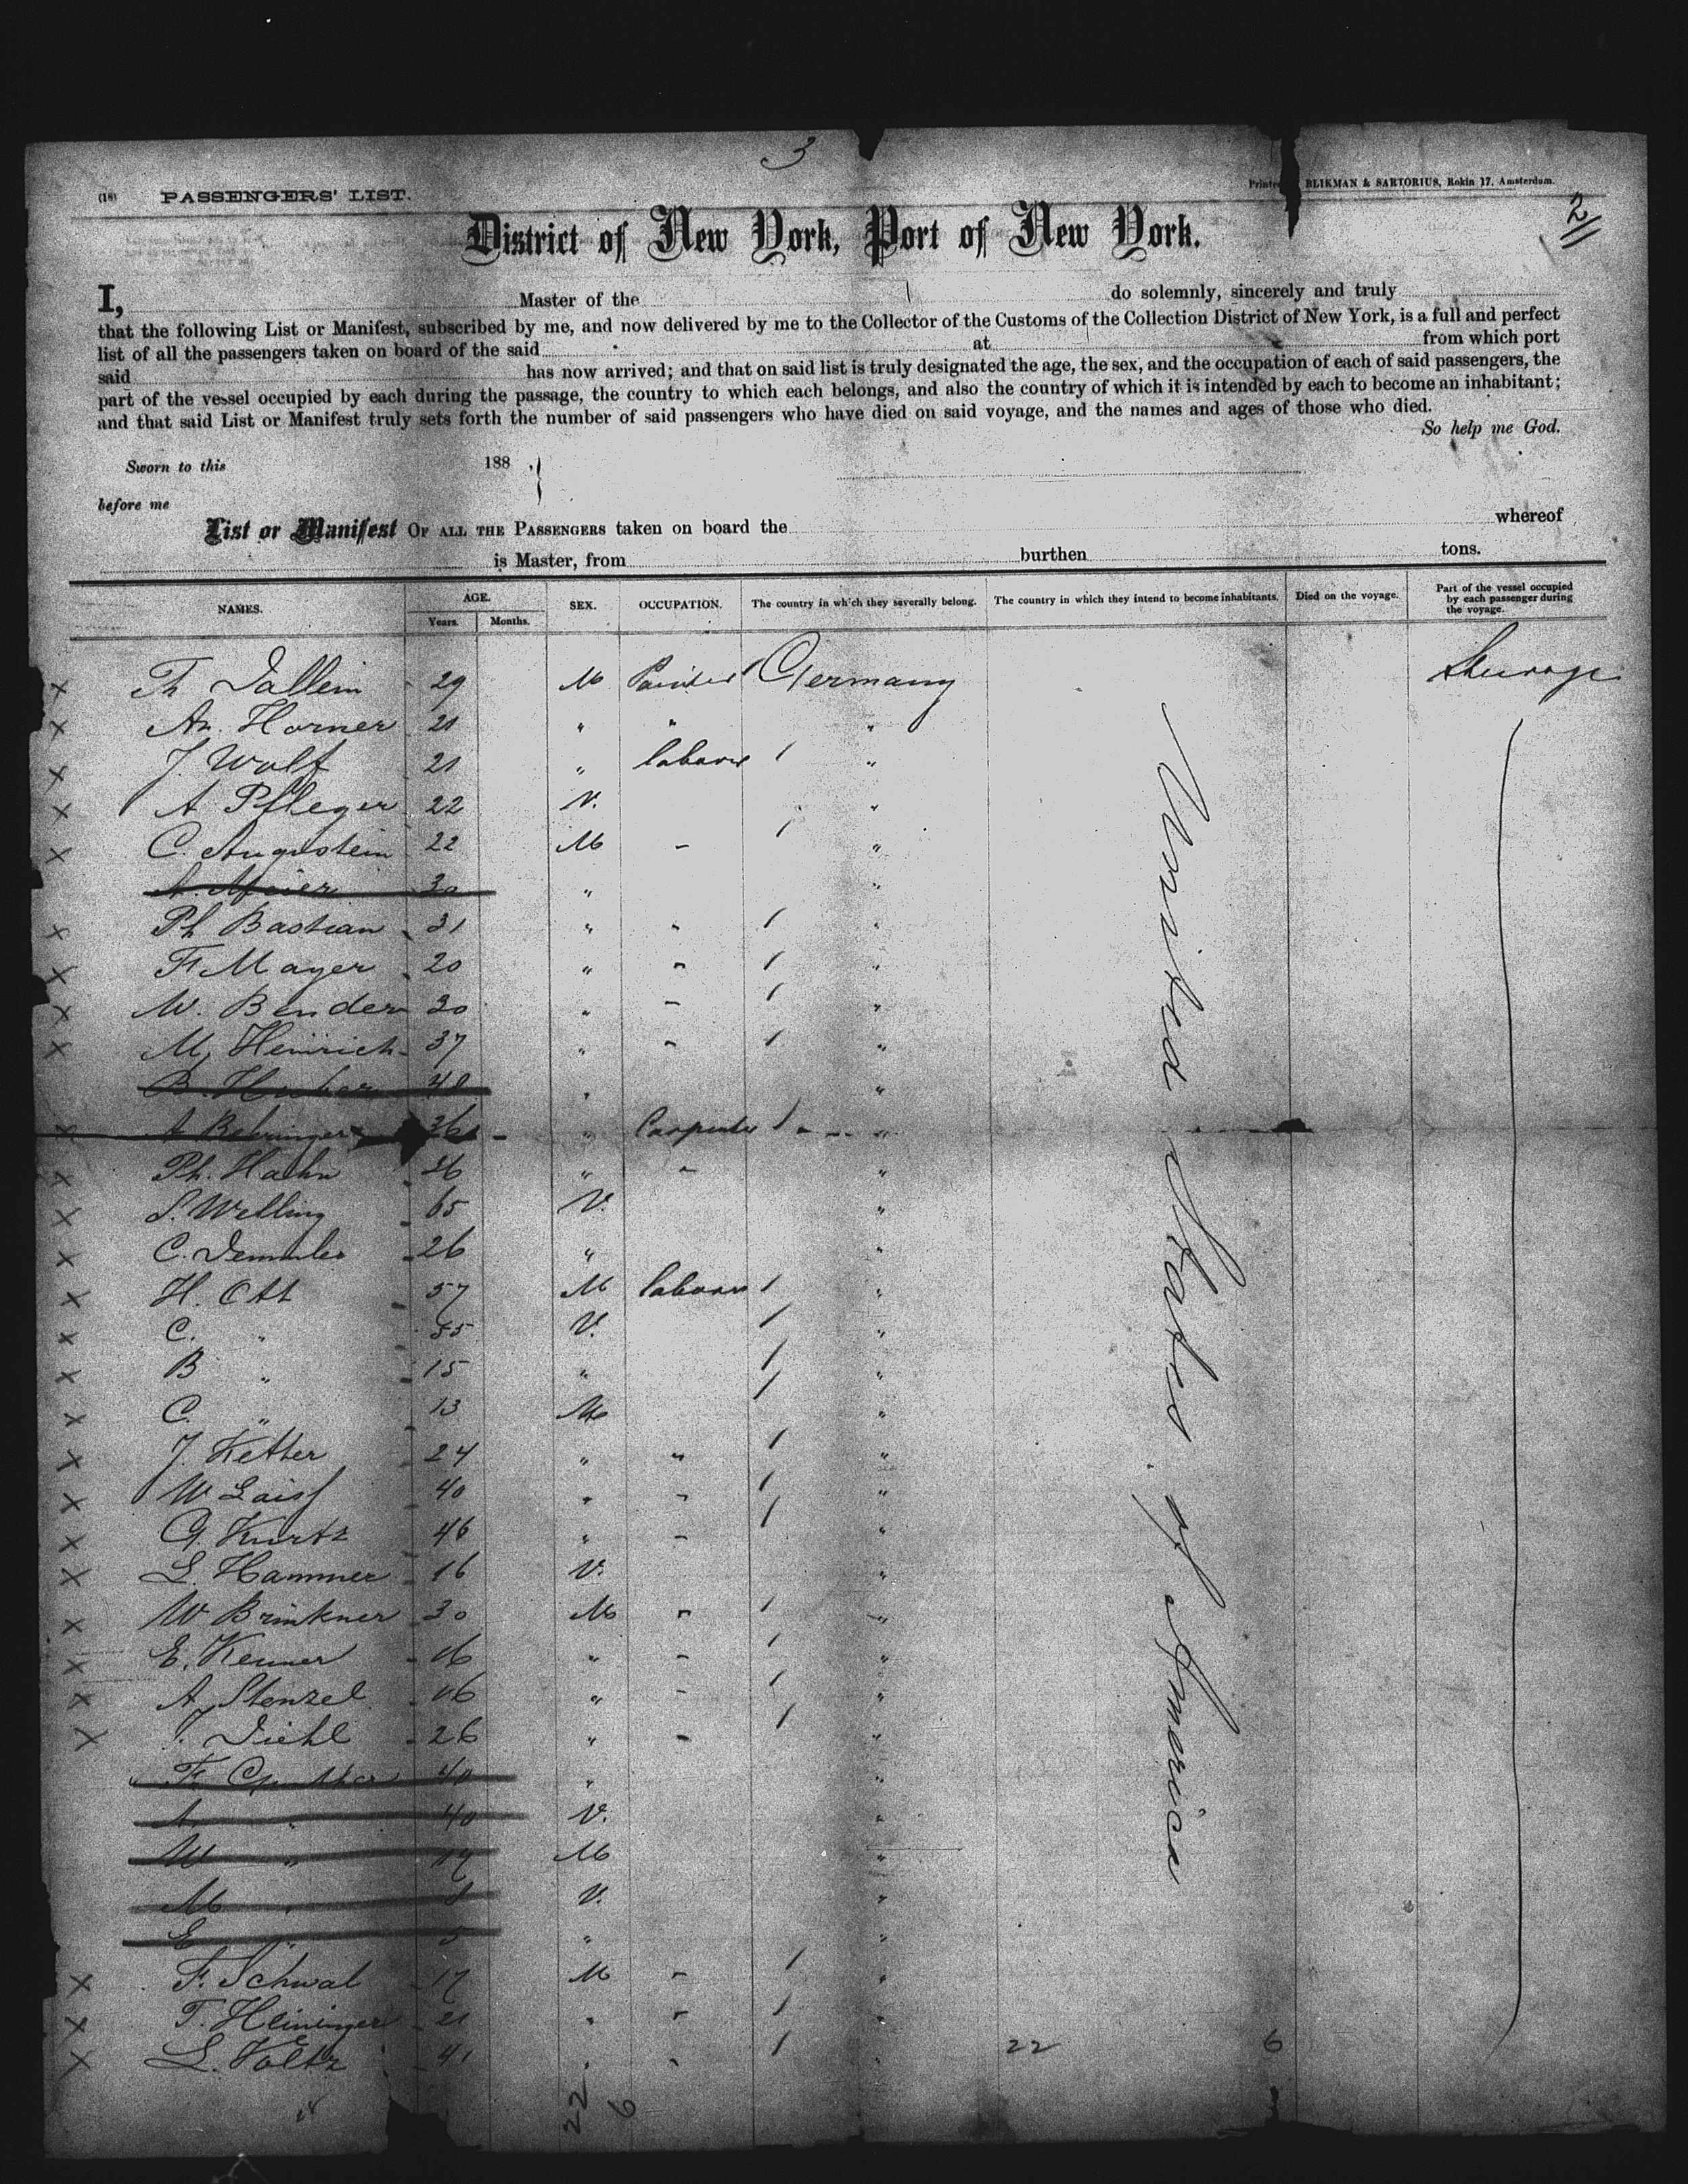 3
(18) PASSENGERS' LIST.
BLIKMAN & SARTORIUS, Rokin 17, Amsterdam.
2
District of New York, Port of New York.
I, Master of the do solemnly, sincerely and truly
that the following List or Manifest, subscribed by me, and now delivered by me to the Collector of the Customs of the Collection District of New York, is a full and perfect
list of all the passengers taken on board of the said at from which port
said has now arrived; and that on said list is truly designated the age, the sex, and the occupation of each of said passengers, the
part of the vessel occupied by each during the passage, the country to which each belongs, and also the country of which it is intended by each to become an inhabitant;
and that said List or Manifest truly sets forth the number of said passengers who have died on said voyage, and the names and ages of those who died.
So help me God.
Sworn to this 188 ,}
before me
List or Manifest OF ALL THE PASSENGERS taken on board the whereof
is Master, from burthen tons.
NAMES. AGE. Years. Months. SEX. OCCUPATION. The country in which they severally belong. The country in which they intend to become inhabitants. Died on the voyage. Part of the vessel occupied by each passenger during the voyage.
x Th Dallein 29 M Painter Germany Steerage
x An. Horner 21 " " "
x J. Wolf 21 " laborer / "
x A Pfleger 22 V. "
x C. Augustein 22 M - / "
A. Meier 30 " "
x Ph Bastian 31 " " / "
x F. Mayer 20 " - / "
x W. Bender 30 " - / "
x M. Heinrich 37 " - / "
B. Huber 48 " "
x A Behringer 36 " Carpenter / "
x Ph. Hahn 26 " - "
x S. Welling 65 V. "
x C. Demmler 26 " "
x H. Ott 57 M laborer / "
x C. " 55 V. / "
x B " 15 " / "
x C. " 13 M / "
x J. Ketter 24 " " / "
x W Laiss 40 " - / "
x G. Kurtz 46 " - / "
x L. Hammer 16 V. "
x W Brinkner 30 M - / "
x E. Kenner 16 " - / "
x A. Stenzel 16 " - / "
x J. Diehl 26 " - / "
F. Gunther 40 " "
A. " 40 V. "
W " M "
M " 8 V. "
E " 5 " "
x F. Schwab 17 M - / "
x T. Heininger 21 " " / "
x L. Voltz 41 " " / "
United States of America
22 6
22
6